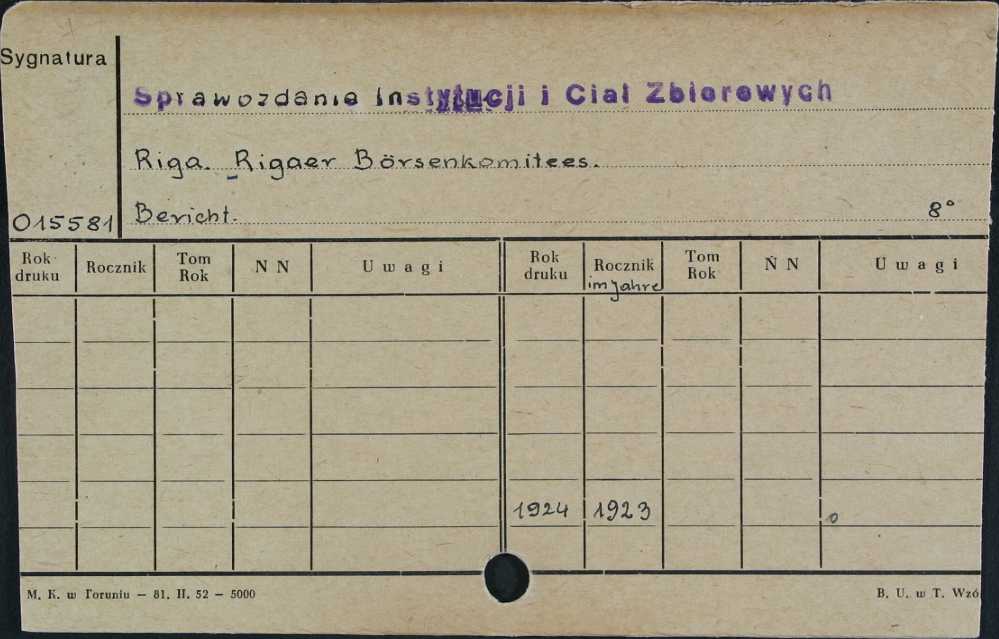 Sygnatura
Sprawozdanie Instytucji i Ciał Zbiorowych
Riga. Rigaer Börsenkomitees.
015581 Bericht. 8°
Rok druku Rocznik Tom Rok N N Uwagi Rok druku Rocznik im Jahre Tom Rok N N Uwagi
1924 1923 0
M. K. w Toruniu — 81. II. 52 — 5000 B. U. w T. Wzó